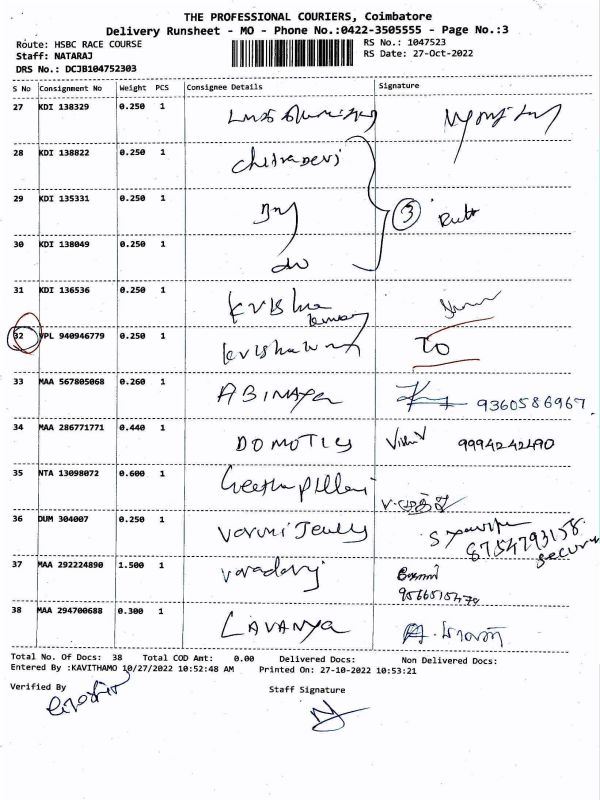 THE PROFESSIONAL COURIERS, Coimbatore
Delivery Runsheet - MO - Phone No.:0422-3505555 - Page No.:3
Route: HSBC RACE COURSE RS No.: 1047523
Staff: NATARAJ RS Date: 27-Oct-2022
DRS No.: DCJB104752303
S No Consignment No Weight PCS Consignee Details Signature
27 KDI 138329 0.250 1
28 KDI 138822 0.250 1 ChitraDevi
29 KDI 135331 0.250 1 3
30 KDI 138049 0.250 1 do
31 KDI 136536 0.250 1 Krishna
32 VPL 940946779 0.250 1 TO
33 MAA 567805068 0.260 1 ABINAYA 9360586967
34 MAA 286771771 0.440 1 DOMOTICS 9994242490
35 NTA 13098072 0.600 1 Geetha Pillai
36 DUM 304007 0.250 1 8754793158
37 MAA 292224890 1.500 1
38 MAA 294700688 0.300 1 LAVANYA
Total No. Of Docs: 38 Total COD Amt: 0.00 Delivered Docs: Non Delivered Docs:
Entered By :KAVITHAMO 10/27/2022 10:52:48 AM Printed On: 27-10-2022 10:53:21
Verified By Staff Signature